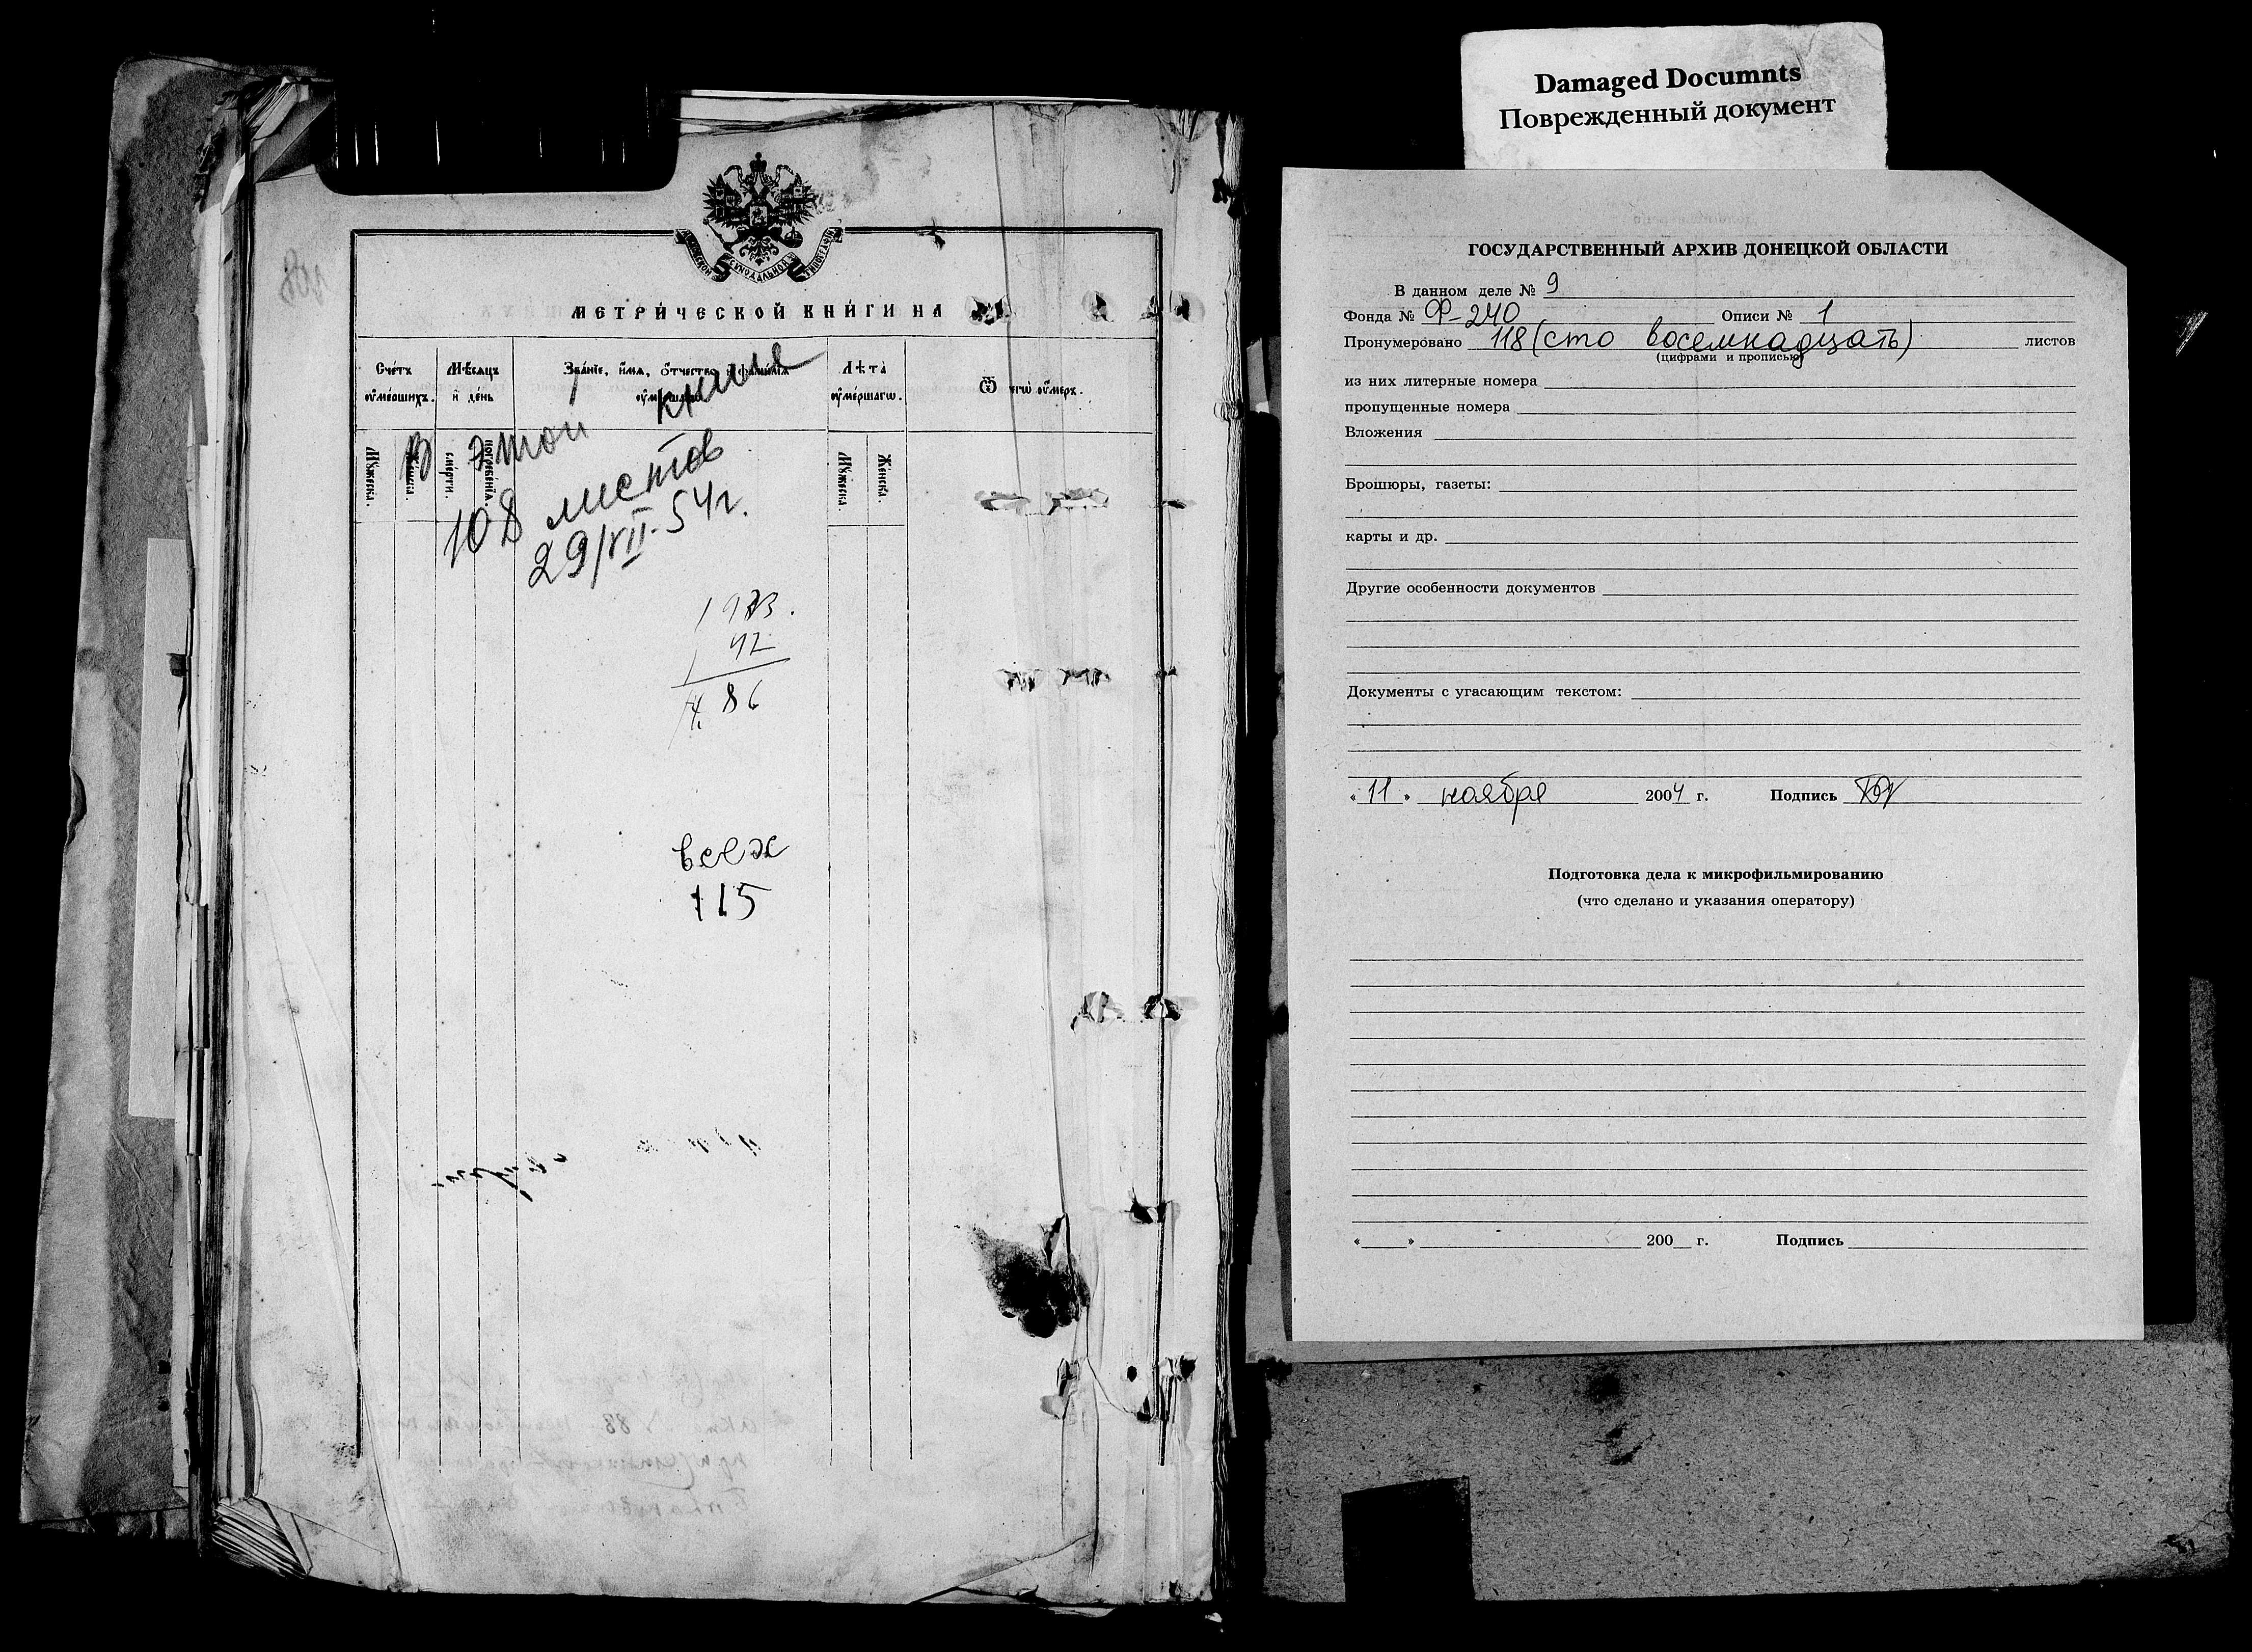 МОСКОВСКОЙ СѴНОДАЛЬНОЙ ТИПОГРАФІИ
МЕТРИ́ЧЕСКОЙ КНИ́ГИ НА
Сче́тъ
ᲂу҆ме́ршихъ.
Мѣ́сѧцъ
и҆ де́нь
Зва́нїе, и҆́мѧ, ѻ҆́тчество и҆ фами́лїѧ
Лѣ́та
ᲂу҆ме́ршагѡ.
Ѿ чегѡ̀ ᲂу҆́меръ.
Мꙋ́жеска.
Же́нска.
сме́рти.
погребе́нїѧ.
Мꙋ́жеска
Же́нска.
В этой книге
108 листов
29/VII-54г.
42
86
всех
115
108
Damaged Documnts
Поврежденный документ
ГОСУДАРСТВЕННЫЙ АРХИВ ДОНЕЦКОЙ ОБЛАСТИ
В данном деле № 9
Фонда № Ф-240 Описи № 1
Пронумеровано 118 (сто восемнадцать) листов
(цифрами и прописью)
из них литерные номера
пропущенные номера
Вложения
Брошюры, газеты:
карты и др.
Другие особенности документов
Документы с угасающим текстом:
«11» ноября 2004 г. Подпись
Подготовка дела к микрофильмированию
(что сделано и указания оператору)
« » 200 г. Подпись